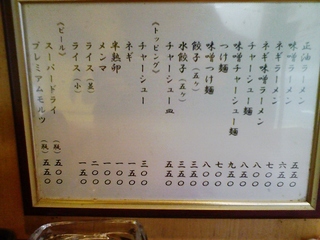 正油ラーメン 五五〇
味噌ラーメン 六五〇
ネギラーメン 七〇〇
ネギ味噌ラーメン 八〇〇
チャーシュー麺
味噌チャーシュー麺 九五〇
つけ麺 七〇〇
味噌つけ麺 八〇〇
餃子(五ヶ) 三五〇
水餃子(五ヶ) 三五〇
チャーシュー皿 五〇〇
《トッピング》
チャーシュー 三〇〇
ネギ 一五〇
半熟卵 一〇〇
メンマ 一〇〇
ライス(並) 二〇〇
ライス(小) 一五〇
《ビール》
スーパードライ (瓶) 五五〇
プレミアムモルツ (瓶) 六〇〇